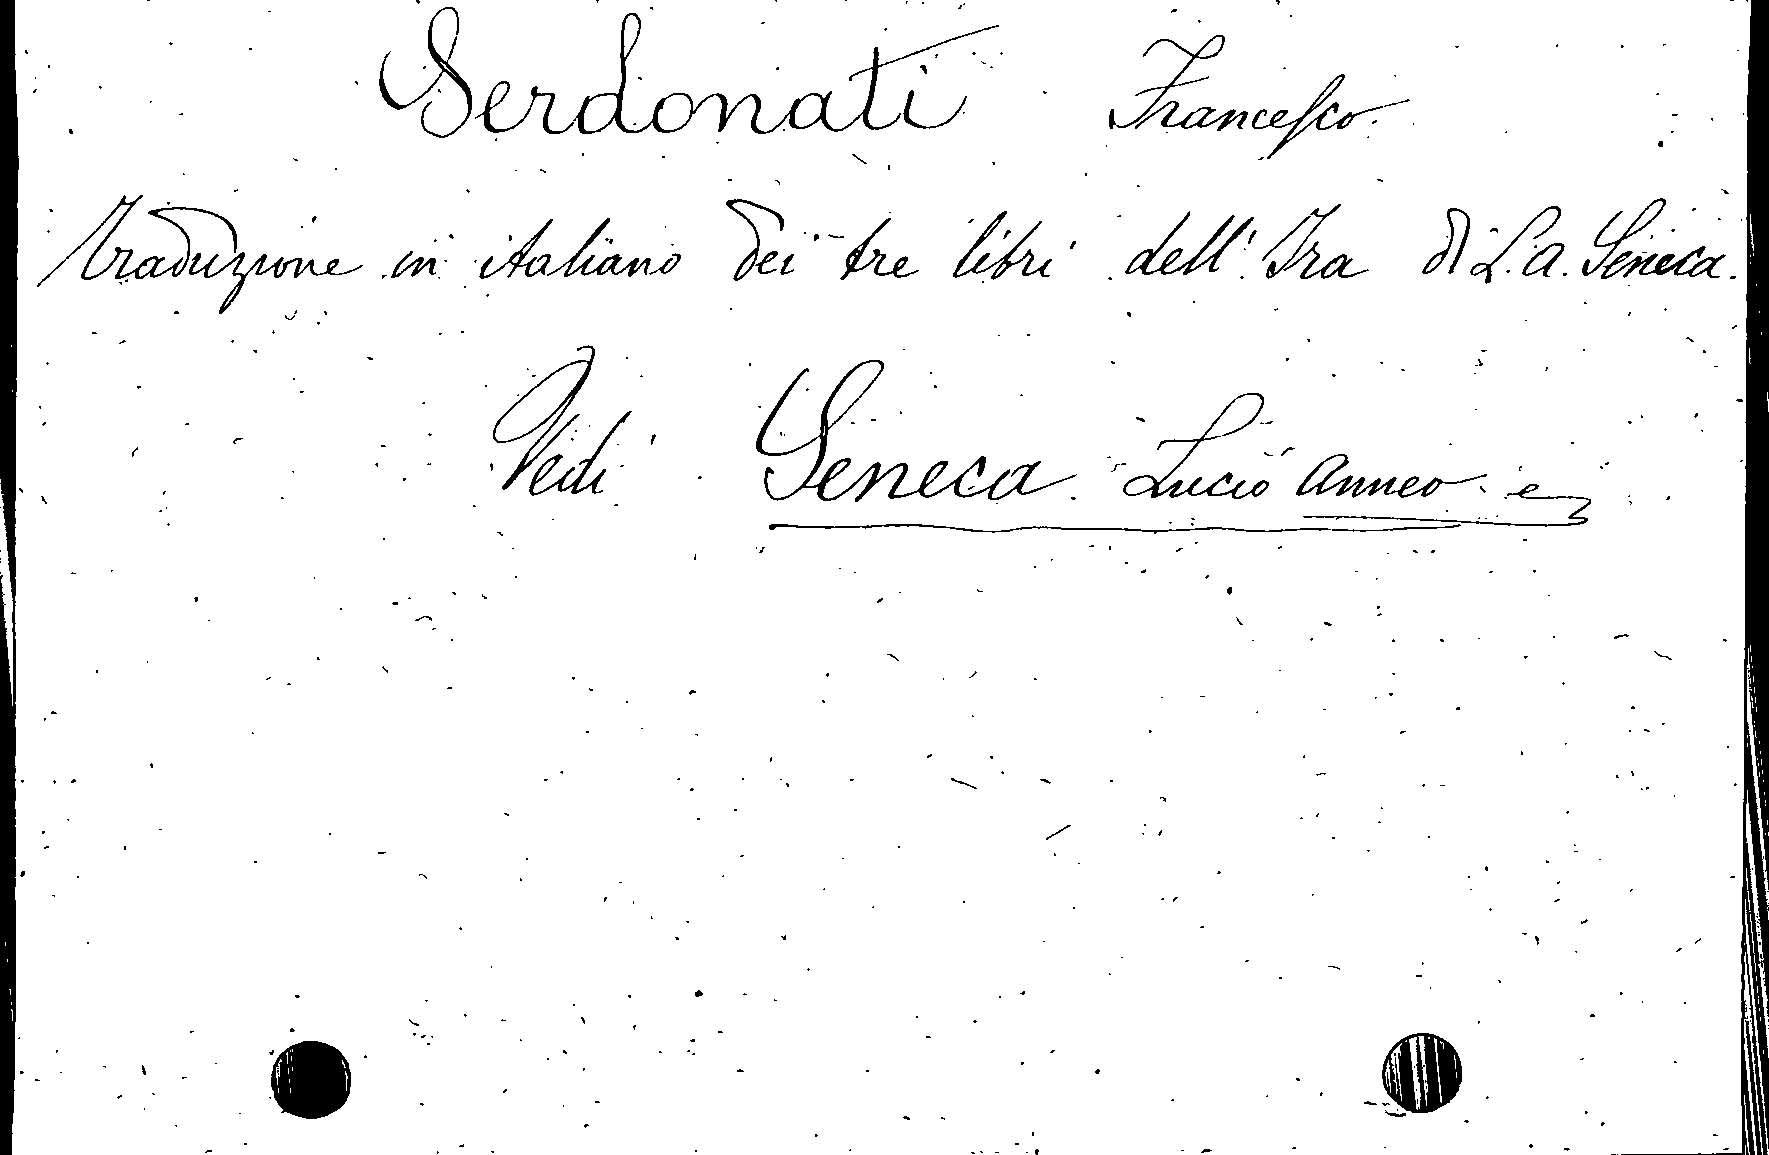 Serdonati Francesco
traduzione in italiano dei tre libri dell'Ira di L. A. Seneca.
Vedi Seneca Lucio Anneo